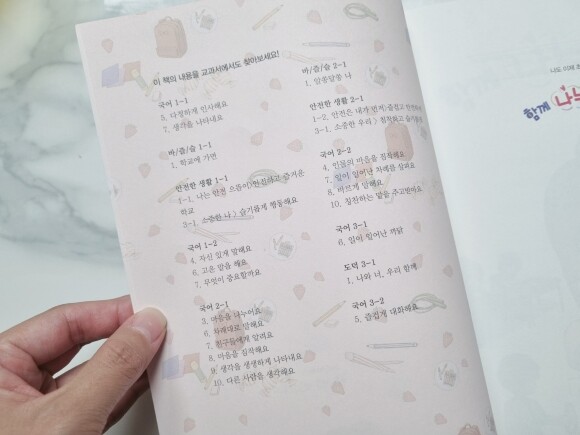 이 책의 내용을 교과서에서도 찾아보세요!
국어 1-1
5. 다정하게 인사해요
7. 생각을 나타내요
바/즐/슬 1-1
1. 학교에 가면
안전한 생활 1-1
1-1. 나는 안전 으뜸이) 안전하고 즐거운
학교
3-1. 소중한 나 ) 슬기롭게 행동해요
국어 1-2
4. 자신 있게 말해요
6. 고운 말을 해요
7. 무엇이 중요할까요
국어 2-1
3. 마음을 나누어요
6. 차례대로 말해요
7. 친구들에게 알려요
8. 마음을 짐작해요
9. 생각을 생생하게 나타내요
10. 다른 사람을 생각해요
바/즐/슬 2-1
1. 알쏭달쏭 나
안전한 생활 2-1
1-2. 안전은 내가 먼저) 즐겁고 안전하게
3-1. 소중한 우리 ) 침착하고 슬기롭게
국어 2-2
4. 인물의 마음을 짐작해요
7. 일이 일어난 차례를 살펴요
8. 바르게 말해요
10. 칭찬하는 말을 주고받아요
국어 3-1
6. 일이 일어난 까닭
도덕 3-1
1. 나와 너, 우리 함께
국어 3-2
5. 즐겁게 대화해요
나도 이제 초
함께 나누